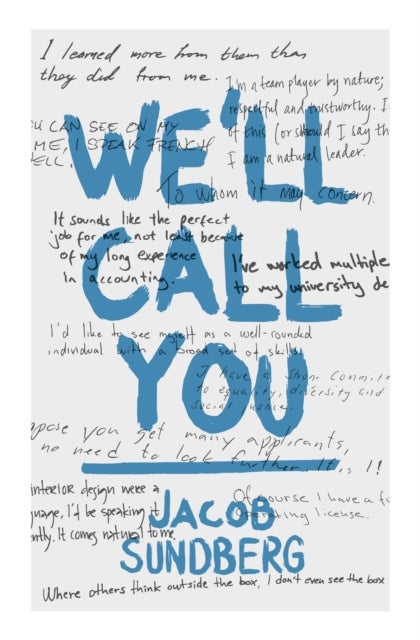 I learned more from them than
they did from me.
I'm a team player by nature;
respectful and trustworthy. I
of this (or should I say th
I am a natural leader.
U CAN SEE ON MY
ME, I SPEAK FRENCH
ELL.
WE'LL
To whom it may concern.
It sounds like the perfect
job for me, not least because
of my long experience
in accounting.
I've worked multiple
to my university de
CALL
I'd like to see myself as a well-rounded
individual with a broad set of skills.
I have a
to equality, diversity and
social justice.
YOU
pose you get many applicants,
no need to look further. It is I!
interior design were a
nguage, I'd be speaking it
ntly. It comes natural to me.
Of course I have a fu
operating license.
JACOB
SUNDBERG
Where others think outside the box, I don't even see the box